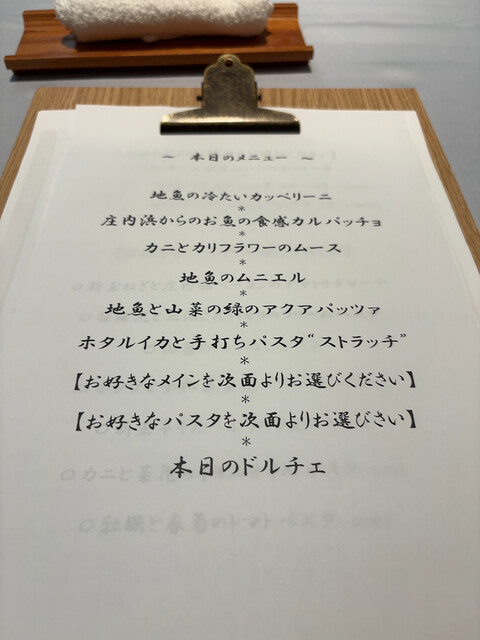 ～ 本日のメニュー ～
地魚の冷たいカッペリーニ
*
庄内浜からのお魚の食感カルパッチョ
*
カニとカリフラワーのムース
*
地魚のムニエル
*
地魚と山菜の緑のアクアパッツァ
*
ホタルイカと手打ちパスタ“ストラッチ”
*
【お好きなメインを次面よりお選びください】
*
【お好きなパスタを次面よりお選びさい】
*
本日のドルチェ